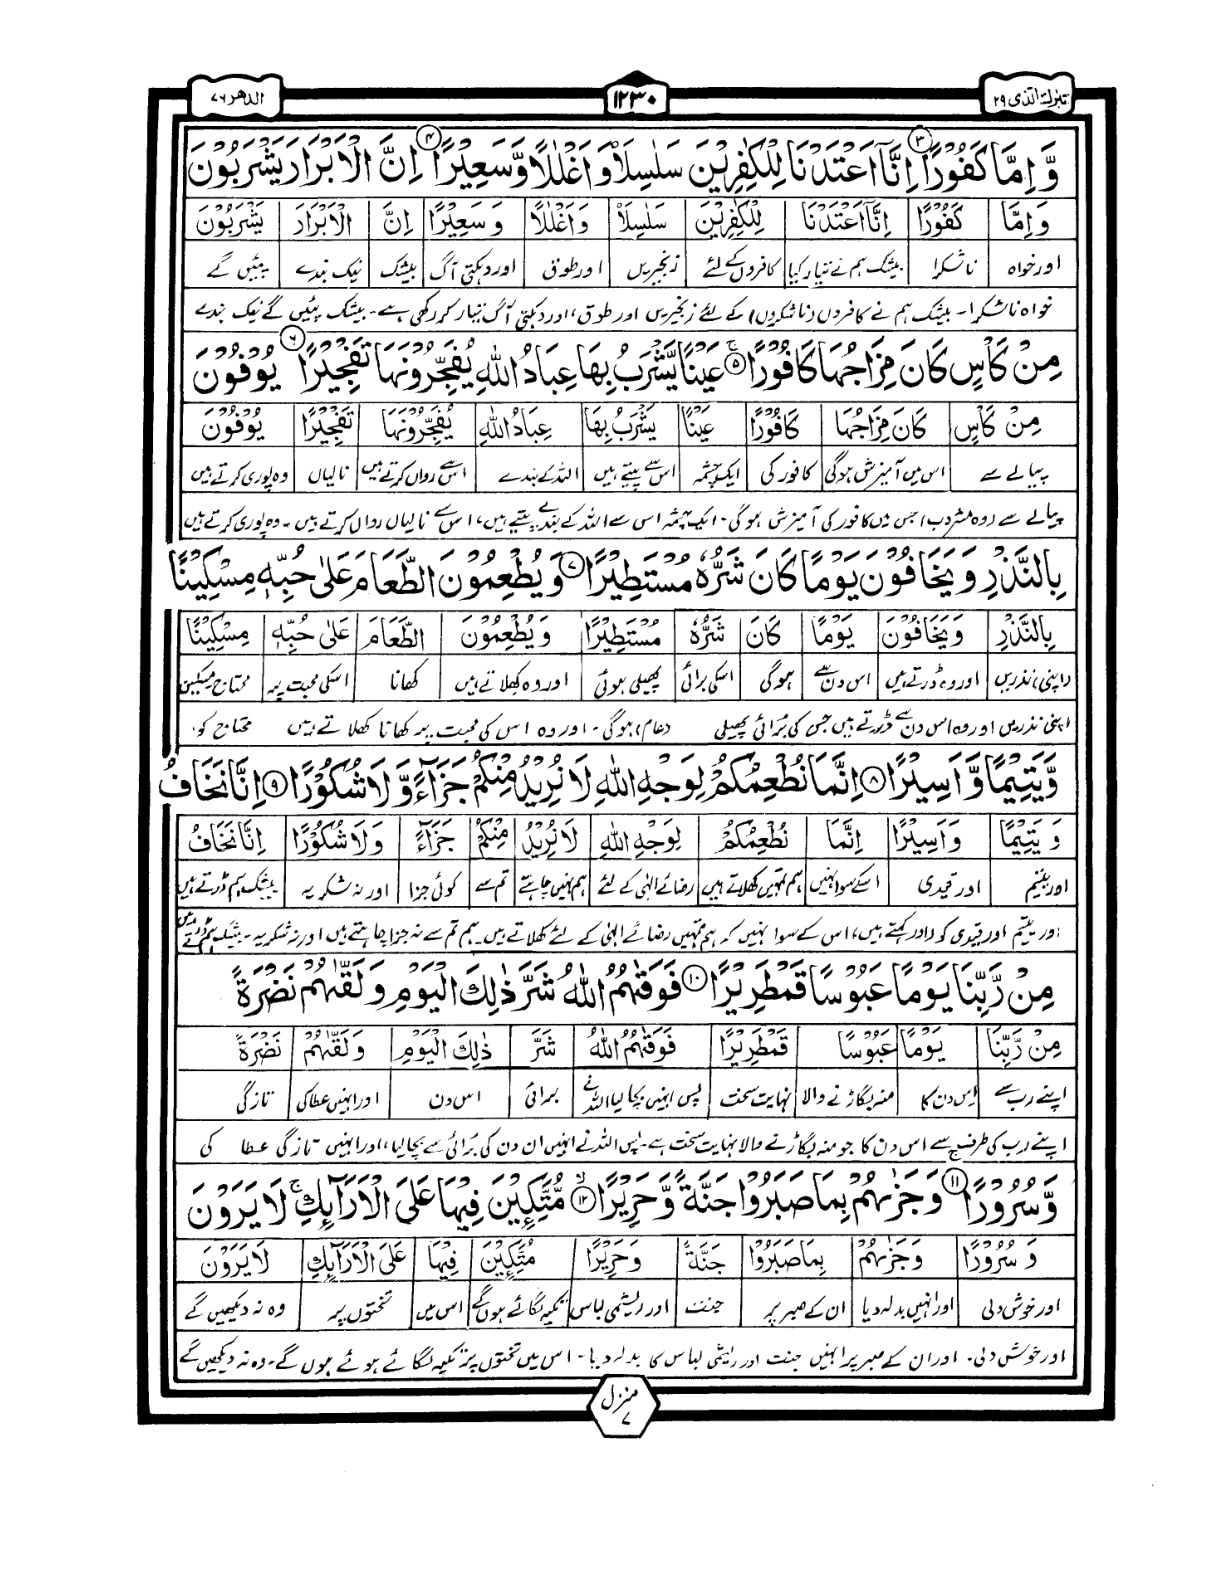 تبٰرك الذی ۲۹
۱۲۳۰
الدهر ۷۶
وَّ اِمَّا كَفُوْرًا ۳ اِنَّاۤ اَعْتَدْنَا لِلْكٰفِرِیْنَ سَلٰسِلَاۡ وَ اَغْلٰلًا وَّ سَعِیْرًا ۴ اِنَّ الْاَبْرَارَ یَشْرَبُوْنَ
وَ اِمَّا كَفُوْرًا اِنَّاۤ اَعْتَدْنَا لِلْكٰفِرِیْنَ سَلٰسِلَاۡ وَ اَغْلٰلًا وَ سَعِیْرًا اِنَّ الْاَبْرَارَ یَشْرَبُوْنَ
اور خواہ ناشکرا بیشک ہم نے تیار کیا کافروں کے لئے زنجیریں اور طوق اور دہکتی آگ بیشک نیک بندے پئیں گے
خواہ ناشکرا۔ بیشک ہم نے کافروں (ناشکروں) کے لئے زنجیریں اور طوق، اور دہکتی آگ تیار کر رکھی ہے۔ بیشک پئیں گے نیک بندے
مِنْ كَاْسٍ كَانَ مِزَاجُهَا كَافُوْرًا ۵ عَیْنًا یَّشْرَبُ بِهَا عِبَادُ اللّٰهِ یُفَجِّرُوْنَهَا تَفْجِیْرًا ۶ یُوْفُوْنَ
مِنْ كَاْسٍ كَانَ مِزَاجُهَا كَافُوْرًا عَیْنًا یَشْرَبُ بِهَا عِبَادُ اللّٰهِ یُفَجِّرُوْنَهَا تَفْجِیْرًا یُوْفُوْنَ
پیالے سے اس میں آمیزش ہوگی کافور کی ایک چشمہ اس سے پیتے ہیں اللہ کے بندے اس سے رواں کرتے ہیں نالیاں وہ پوری کرتے ہیں
پیالے سے (وہ مشروب) جس میں کافور کی آمیزش ہوگی۔ ایک چشمہ اس سے اللہ کے بندے پیتے ہیں، اس سے نالیاں رواں کرتے ہیں۔ وہ پوری کرتے ہیں
بِالنَّذْرِ وَ یَخَافُوْنَ یَوْمًا كَانَ شَرُّهٗ مُسْتَطِیْرًا ۷ وَ یُطْعِمُوْنَ الطَّعَامَ عَلٰی حُبِّهٖ مِسْكِیْنًا
بِالنَّذْرِ وَ یَخَافُوْنَ یَوْمًا كَانَ شَرُّهٗ مُسْتَطِیْرًا وَ یُطْعِمُوْنَ الطَّعَامَ عَلٰی حُبِّهٖ مِسْكِیْنًا
(اپنی) نذریں اور وہ ڈرتے ہیں اس دن سے ہوگی اسکی برائی پھیلی ہوئی اور وہ کھلاتے ہیں کھانا اسکی محبت پر محتاج مسکین
اپنی نذریں اور وہ اس دن سے ڈرتے ہیں جس کی برائی پھیلی (عام) ہوگی۔ اور وہ اس کی محبت پر کھانا کھلاتے ہیں محتاج کو،
وَّ یَتِیْمًا وَّ اَسِیْرًا ۸ اِنَّمَا نُطْعِمُكُمْ لِوَجْهِ اللّٰهِ لَا نُرِیْدُ مِنْكُمْ جَزَآءً وَّ لَا شُكُوْرًا ۹ اِنَّا نَخَافُ
وَ یَتِیْمًا وَ اَسِیْرًا اِنَّمَا نُطْعِمُكُمْ لِوَجْهِ اللّٰهِ لَا نُرِیْدُ مِنْكُمْ جَزَآءً وَ لَا شُكُوْرًا اِنَّا نَخَافُ
اور یتیم اور قیدی اسکے سوا نہیں ہم تمہیں کھلاتے ہیں رضائے الٰہی کے لئے ہم نہیں چاہتے تم سے کوئی جزا اور نہ شکریہ بیشک ہم ڈرتے ہیں
اور یتیم اور قیدی کو (اور کہتے ہیں) اس کے سوا نہیں کہ ہم تمہیں رضائے الٰہی کے لئے کھلاتے ہیں۔ ہم تم سے نہ جزا چاہتے ہیں اور نہ شکریہ۔ بیشک ہم ڈرتے ہیں
مِنْ رَّبِّنَا یَوْمًا عَبُوْسًا قَمْطَرِیْرًا ۱۰ فَوَقٰىهُمُ اللّٰهُ شَرَّ ذٰلِكَ الْیَوْمِ وَ لَقّٰىهُمْ نَضْرَةً
مِنْ رَّبِّنَا یَوْمًا عَبُوْسًا قَمْطَرِیْرًا فَوَقٰىهُمُ اللّٰهُ شَرَّ ذٰلِكَ الْیَوْمِ وَ لَقّٰىهُمْ نَضْرَةً
اپنے رب سے اس دن کا منہ بگاڑنے والا نہایت سخت پس انہیں بچا لیا اللہ نے برائی اس دن اور انہیں عطا کی تازگی
اپنے رب کی طرف سے اس دن کا جو منہ بگاڑنے والا نہایت سخت ہے۔ پس اللہ نے انہیں اس دن کی برائی سے بچا لیا، اور انہیں تازگی عطا کی
وَّ سُرُوْرًا ۱۱ وَ جَزٰىهُمْ بِمَا صَبَرُوْا جَنَّةً وَّ حَرِیْرًا ۱۲ مُّتَّكِـِٕیْنَ فِیْهَا عَلَی الْاَرَآىِٕكِ ۚ لَا یَرَوْنَ
وَ سُرُوْرًا وَ جَزٰىهُمْ بِمَا صَبَرُوْا جَنَّةً وَ حَرِیْرًا مُتَّكِـِٕیْنَ فِیْهَا عَلَی الْاَرَآىِٕكِ لَا یَرَوْنَ
اور خوش دلی اور انہیں بدلہ دیا ان کے صبر پر جنت اور ریشمی لباس تکیہ لگائے ہوں گے اس میں تختوں پر وہ نہ دیکھیں گے
اور خوش دلی۔ اور ان کے صبر پر انہیں جنت اور ریشمی لباس کا بدلہ دیا۔ اس میں تختوں پر تکیہ لگائے ہوئے ہوں گے۔ وہ نہ دیکھیں گے
منزل ۷